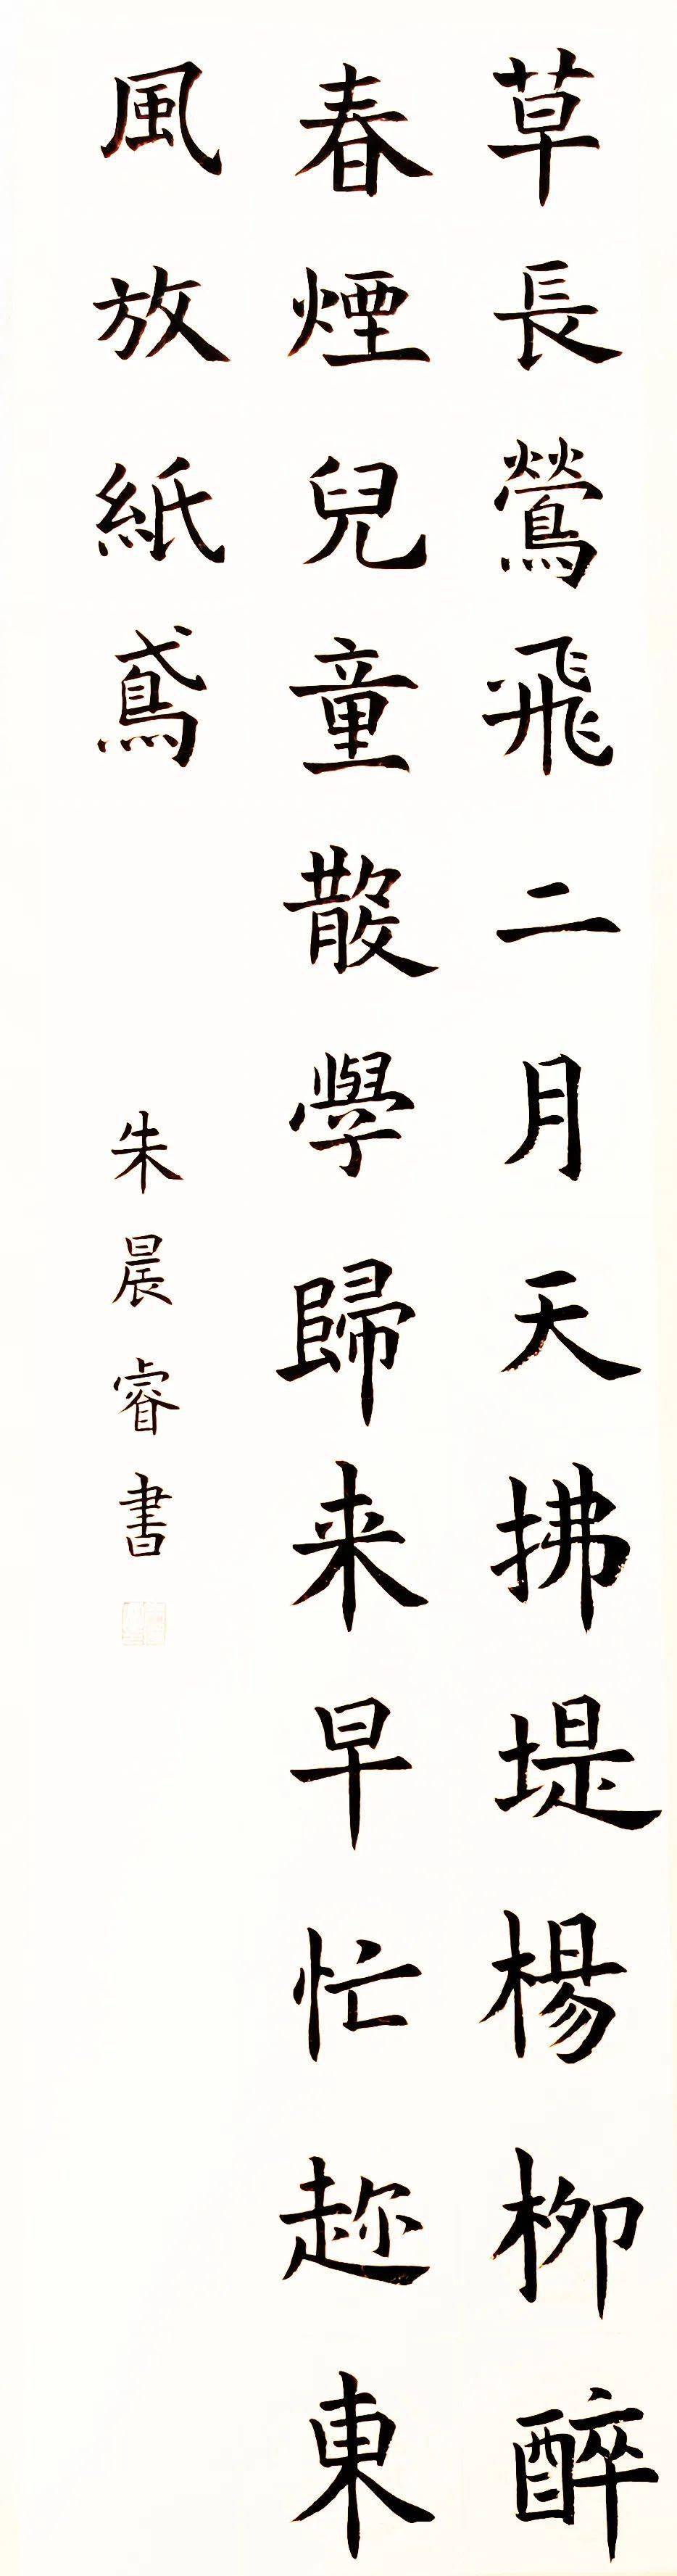 草長鶯飛二月天拂堤楊柳醉
春煙兒童散學歸来早忙趂東
風放紙鳶
朱晨睿書